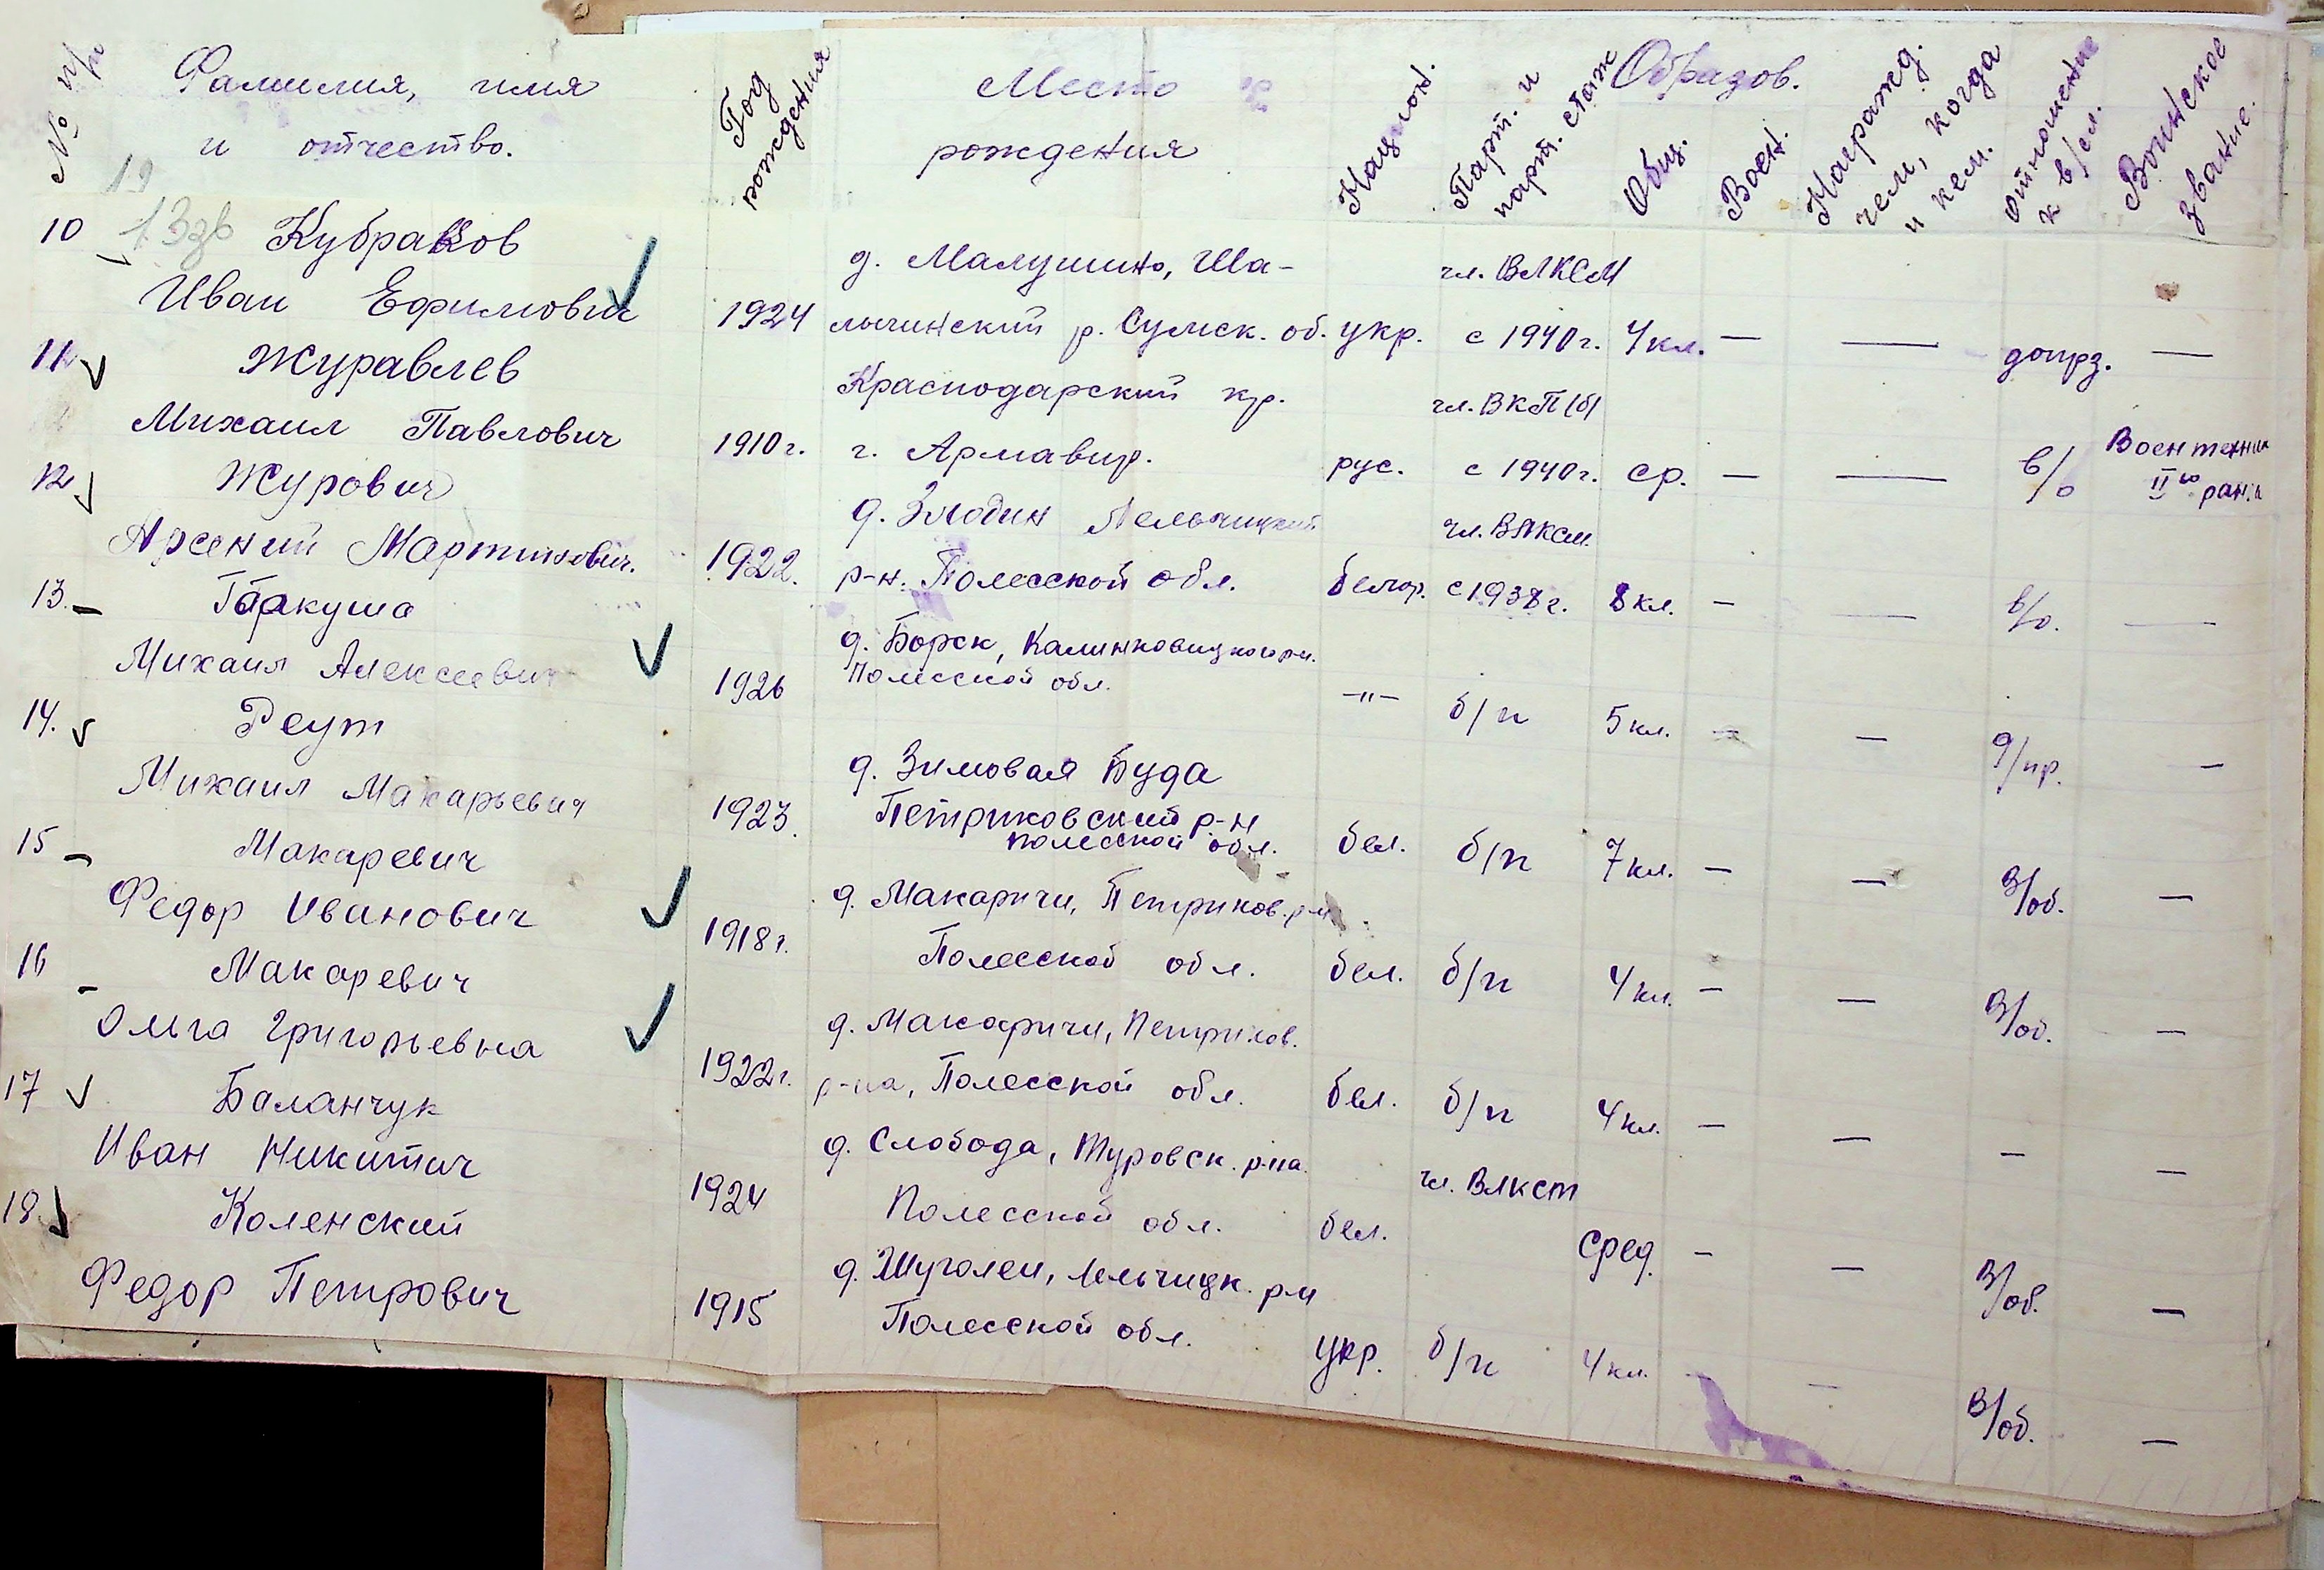 № п/п
Фамилия, имя
и отчество.
Год
рождения
Место
рождения
Национ.
Парт. и
парт. стаж
Образов.
Общ.
Воен.
Награжд.
чем, когда
и кем.
Отношение
к в/сл.
Воинское
звание.
19
10 13 Кубраков
д. Малушино, Ша- чл. ВЛКСМ
Иван Ефимович 1924 лычинский р. Сумск. об. укр. с 1940г. 4 кл. — — допрз. —
11 Журавлев
Краснодарский кр. чл. ВКП(б)
Михаил Павлович 1910г. г. Армавир. рус. с 1940г. ср. — — в/о Воентехник
IIго ранга
12 Журович
д. Злодин Лельчицкий чл. ВЛКСМ.
Арсений Мартинович. 1922. р-н. Полесской обл. белор. с 1938г. 8 кл. — — в/о. —
13. Гаркуша
д. Борск, Калинковицкого р-н.
Михаил Алексеевич 1926 Полесской обл. —"— б/п 5 кл. — — д/пр. —
14. Реут
д. Зимовая Буда
Михаил Макарьевич 1923. Петриковский р-н
Полесской обл. бел. б/п 7 кл. — — в/об. —
15 Макаревич
д. Макаричи, Петриков. р-н
Федор Иванович 1918г. Полесской обл. бел. б/п 4 кл. — — в/об. —
16 Макаревич
д. Макаричи, Петриков.
Ольга Григорьевна 1922г. р-на, Полесской обл. бел. б/п 4 кл. — — — —
17 Баланчук
д. Слобода, Туровск. р-на. чл. ВЛКСМ
Иван Никитич 1924 Полесской обл. бел. сред. — — в/об. —
18 Коленский
д. Шуголеи, Лельчицк. р-н
Федор Петрович 1915 Полесской обл. укр. б/п 4 кл. — — в/об. —